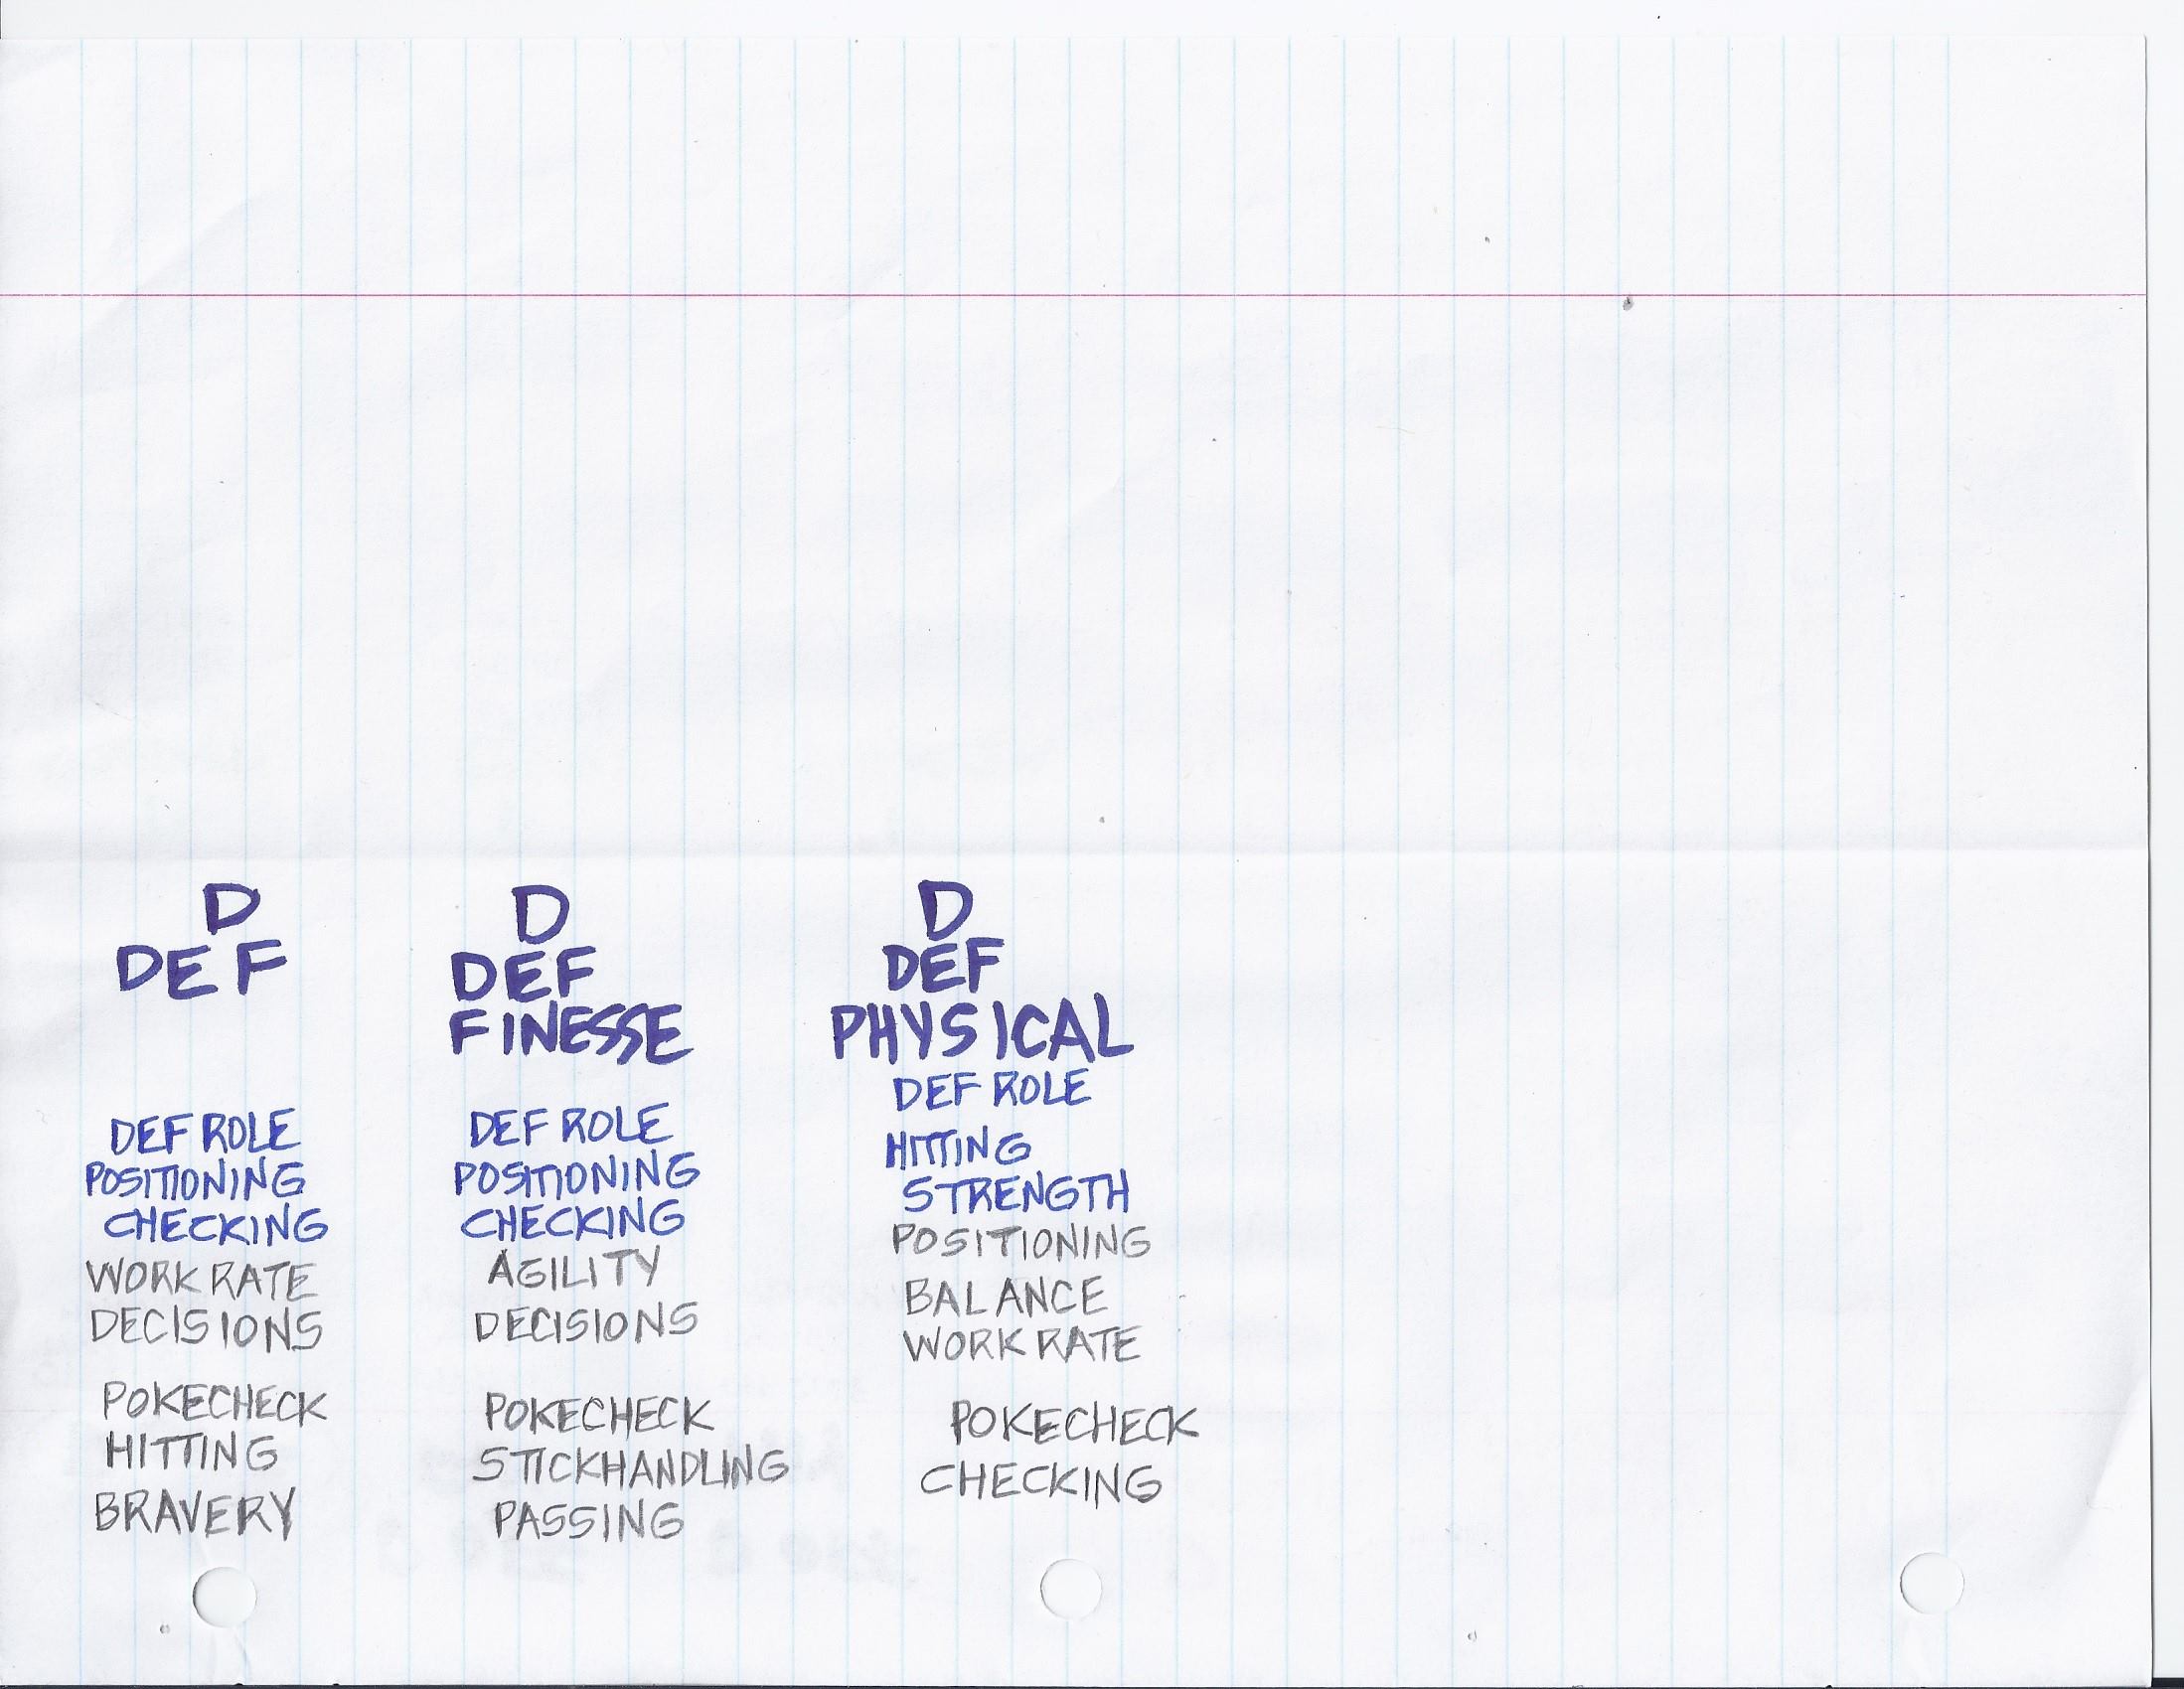 D
DEF
DEF ROLE
POSITIONING
CHECKING
WORK RATE
DECISIONS
POKECHECK
HITTING
BRAVERY
D
DEF
FINESSE
DEF ROLE
POSITIONING
CHECKING
AGILITY
DECISIONS
POKECHECK
STICKHANDLING
PASSING
D
DEF
PHYSICAL
DEF ROLE
HITTING
STRENGTH
POSITIONING
BALANCE
WORK RATE
POKECHECK
CHECKING